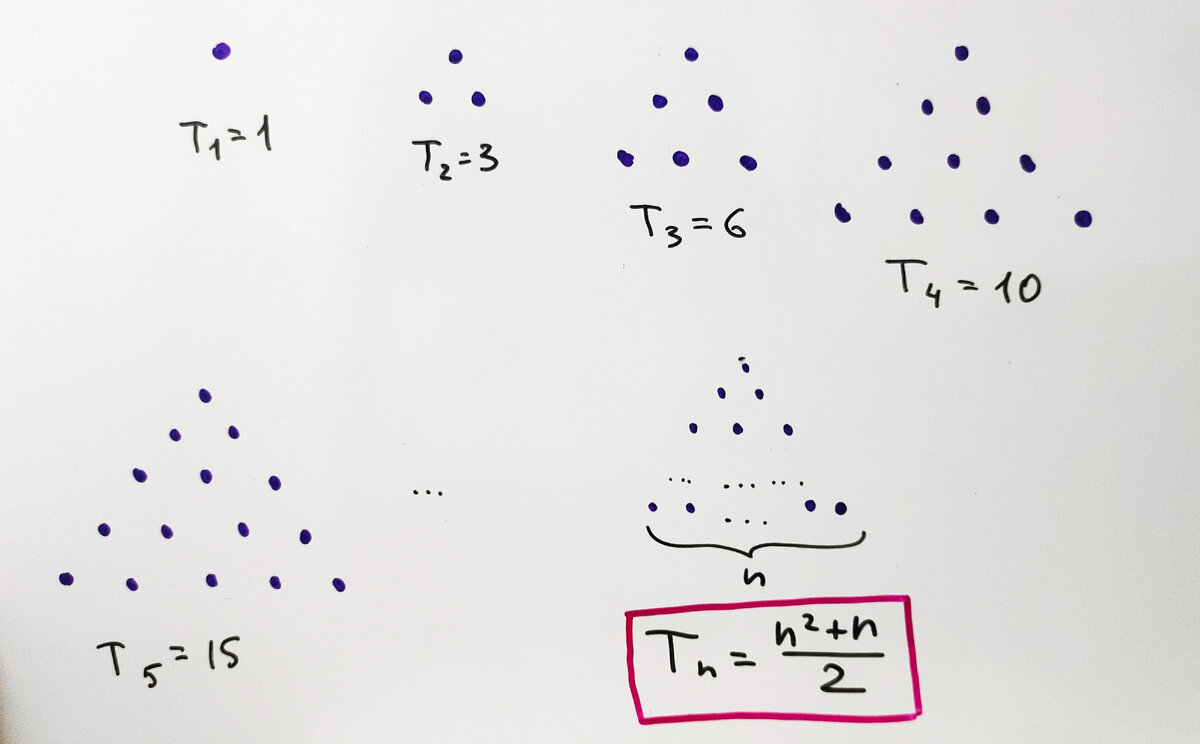 T₁=1
T₂=3
T₃=6
T₄=10
...
... ... ...
...
n
T₅=15
Tₙ=(n²+n)/2